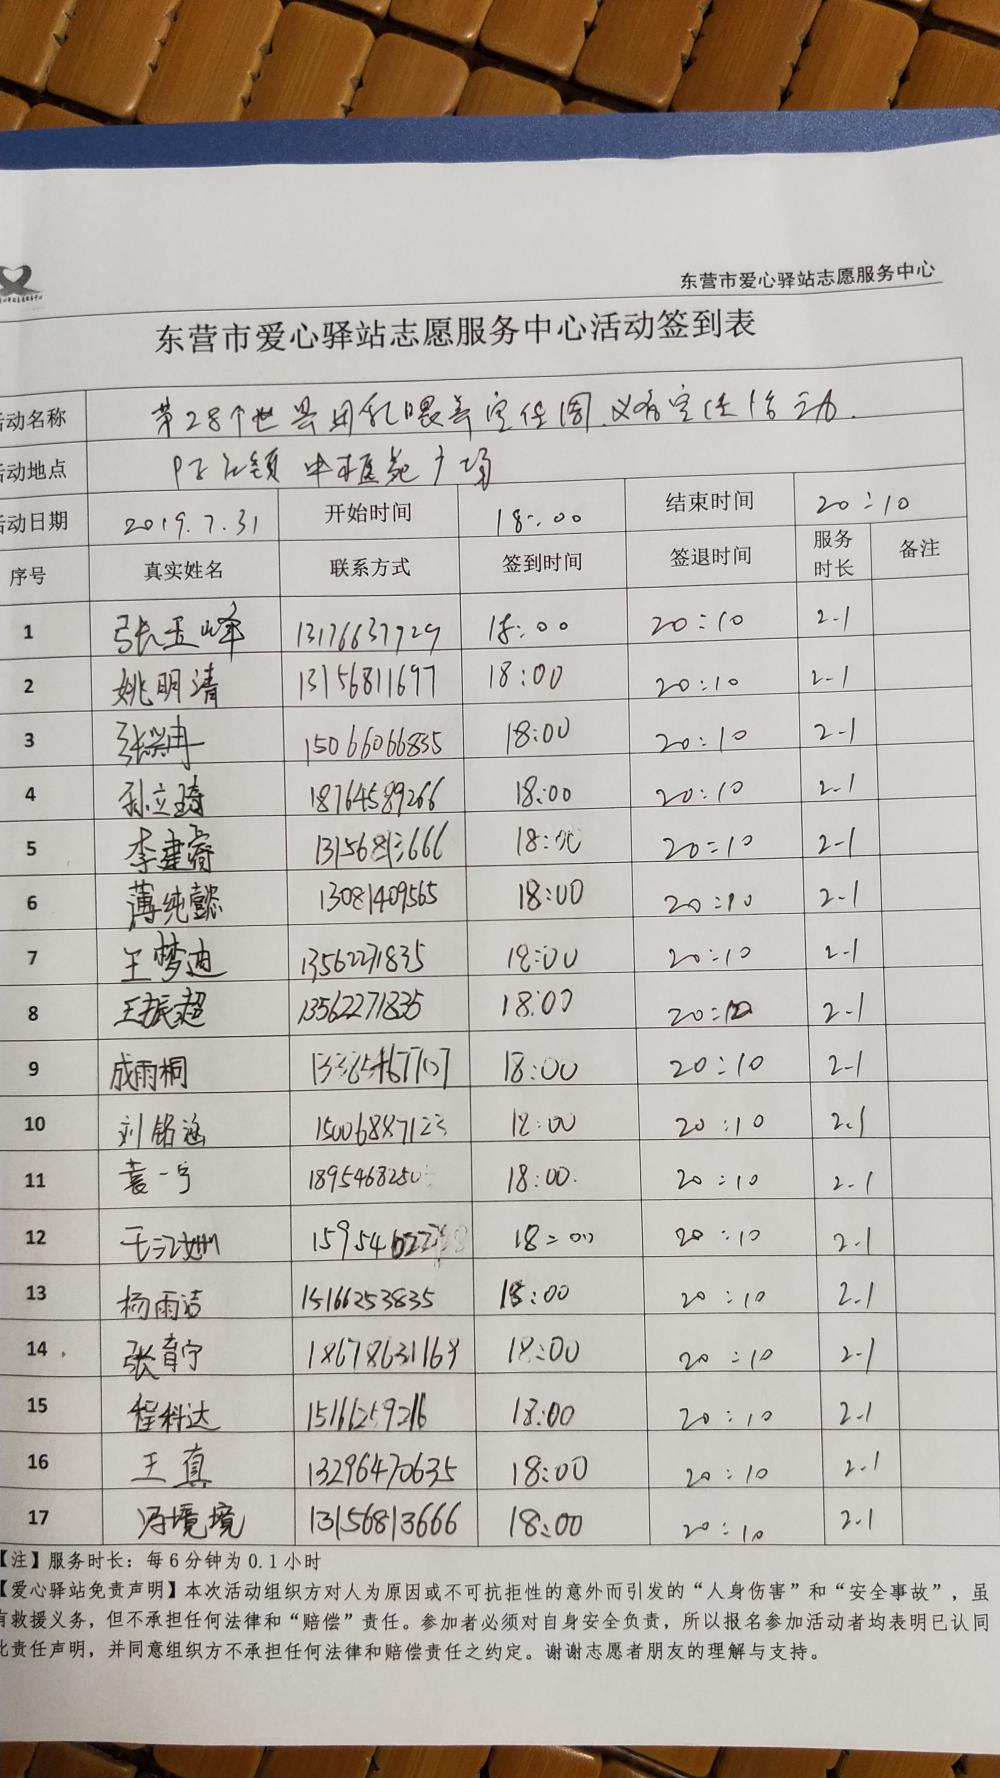 东营市爱心驿站志愿服务中心
东营市爱心驿站志愿服务中心活动签到表
活动名称 第28个世界母乳喂养宣传周 义诊宣传活动.
动地点 广场
动日期 2019.7.31 开始时间 18:00 结束时间 20:10
序号 真实姓名 联系方式 签到时间 签退时间 服务时长 备注
1 张玉峰 13176637929 18:00 20:10 2.1
2 姚明清 13156811697 18:00 20:10 2.1
3 15066066835 18:00 20:10 2.1
4 孙立琦 18764589266 18:00 20:10 2.1
5 李建睿 13156813666 18:00 20:10 2.1
6 薄纯懿 13081409565 18:00 20:10 2.1
7 王梦迪 13562271835 18:00 20:10 2.1
8 王振超 13562271835 18:00 20:10 2.1
9 成雨桐 18:00 20:10 2.1
10 刘铭涵 15006887123 18:00 20:10 2.1
11 袁一宁 18:00. 20:10 2.1
12 18:00 20:10 2.1
13 杨雨洁 15166253835 18:00 20:10 2.1
14 张育宁 18678631168 18:00 20:10 2.1
15 程科达 15166259216 18:00 20:10 2.1
16 王真 13296470635 18:00 20:10 2.1
17 冯境境 13156813666 18:00 20:10 2.1
【注】服务时长：每6分钟为0.1小时
【爱心驿站免责声明】本次活动组织方对人为原因或不可抗拒性的意外而引发的“人身伤害”和“安全事故”，虽
有救援义务，但不承担任何法律和“赔偿”责任。参加者必须对自身安全负责，所以报名参加活动者均表明已认同
此责任声明，并同意组织方不承担任何法律和赔偿责任之约定。谢谢志愿者朋友的理解与支持。